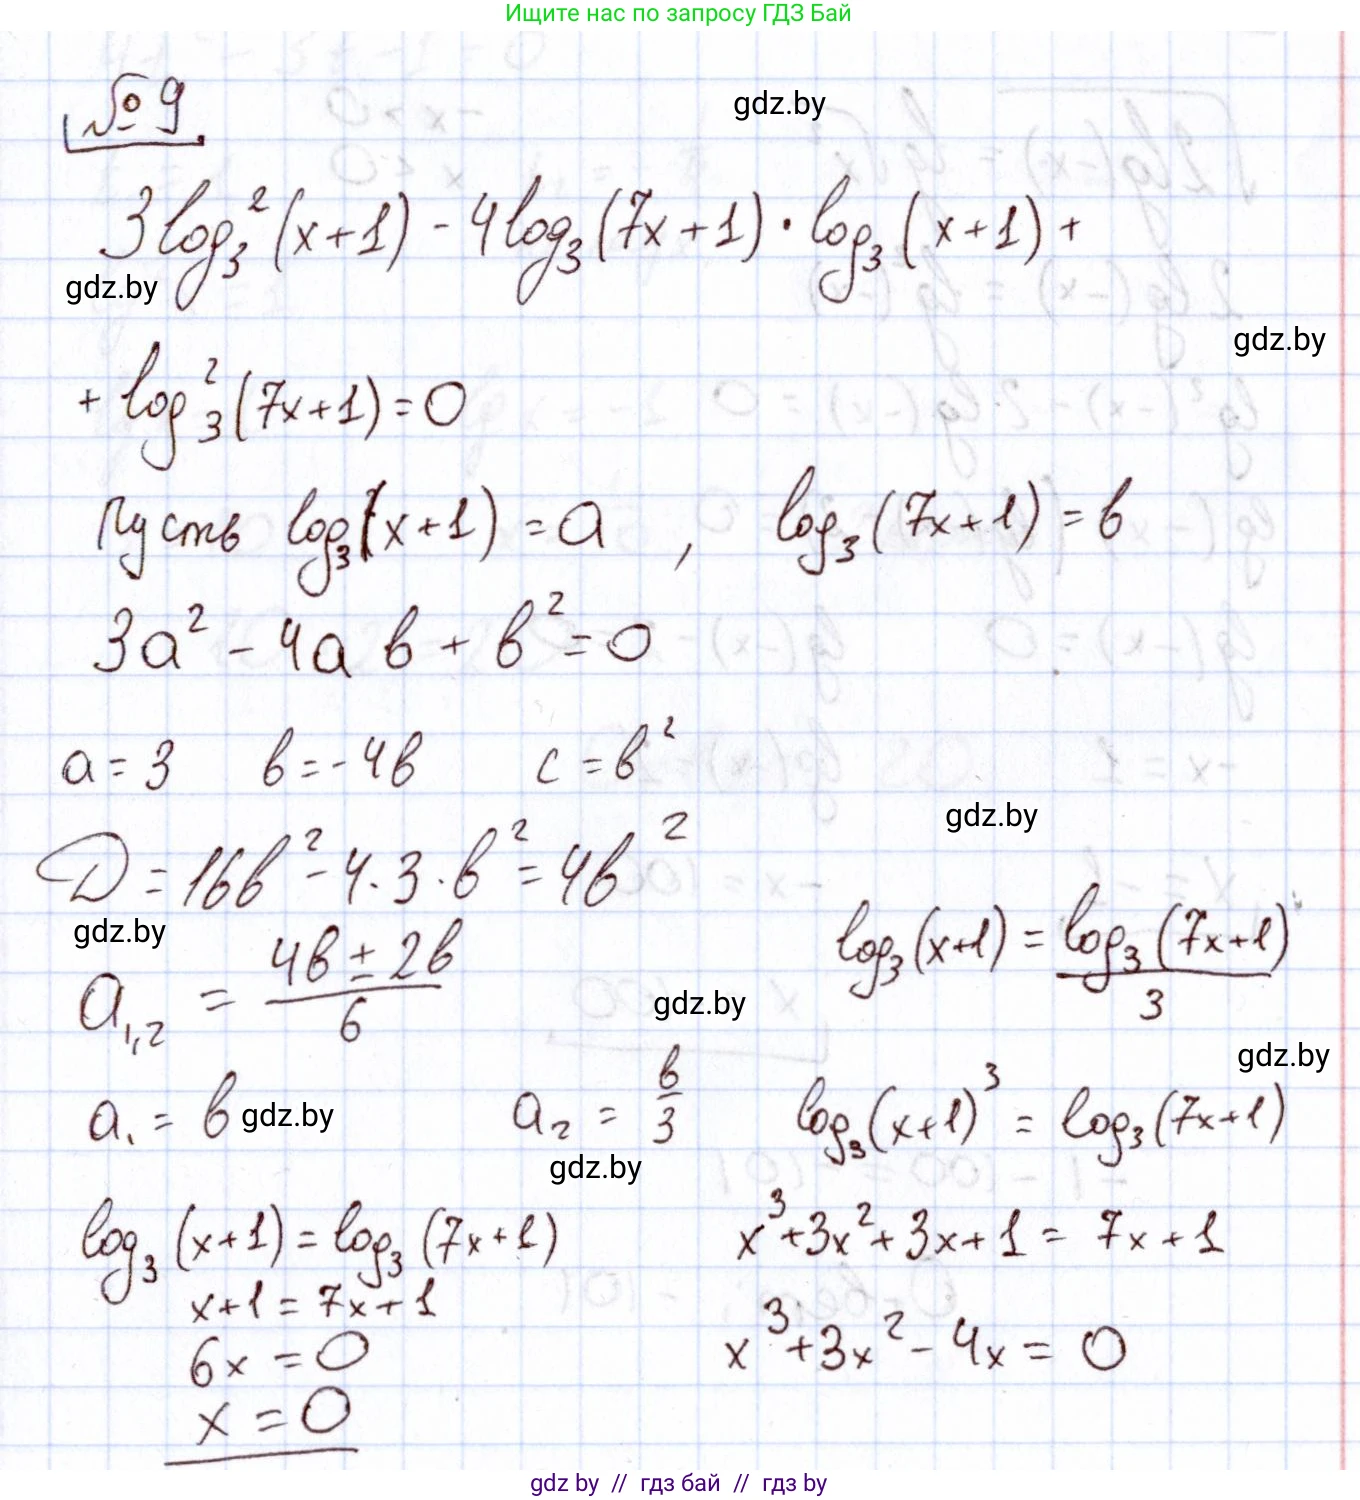 Ищите нас по запросу ГДЗ Бай
№ 9
gdz.by
3log₃²(x+1) - 4log₃(7x+1) · log₃(x+1) +
gdz.by
gdz.by
+ log₃²(7x+1) = 0
Пусть log₃(x+1) = a , log₃(7x+1) = в
3a² - 4a в + в² = 0
a = 3 в = -4в c = в²
gdz.by
D = 16в² - 4·3·в² = 4в²
gdz.by
a₁,₂ = (4в ± 2в)/6
gdz.by
a₁ = в
gdz.by
a₂ = в/3
gdz.by
log₃(x+1) = log₃(7x+1)
x+1 = 7x+1
6x = 0
x = 0
log₃(x+1) = log₃(7x+1)/3
gdz.by
log₃(x+1)³ = log₃(7x+1)
x³+3x²+3x+1 = 7x+1
x³+3x²-4x = 0
gdz by // гдз бай // гдз by